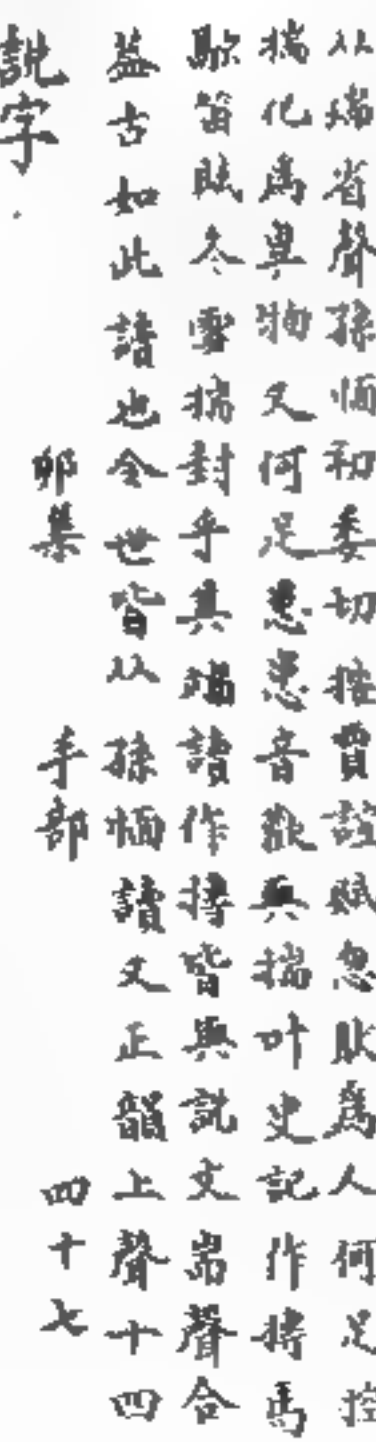 从瑞省聲孫愐初委切按賈誼賦忽肰爲人何足控
揣化爲異物又何足患患音歡與揣叶史記作摶馬
融笛賦冬雪揣封乎其端讀作摶皆與說文耑聲合
蓋古如此讀也今世皆从孫愐讀又正韻上聲十四
說字 卯集 手部 四十七